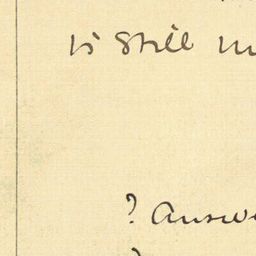 is still
? Answ